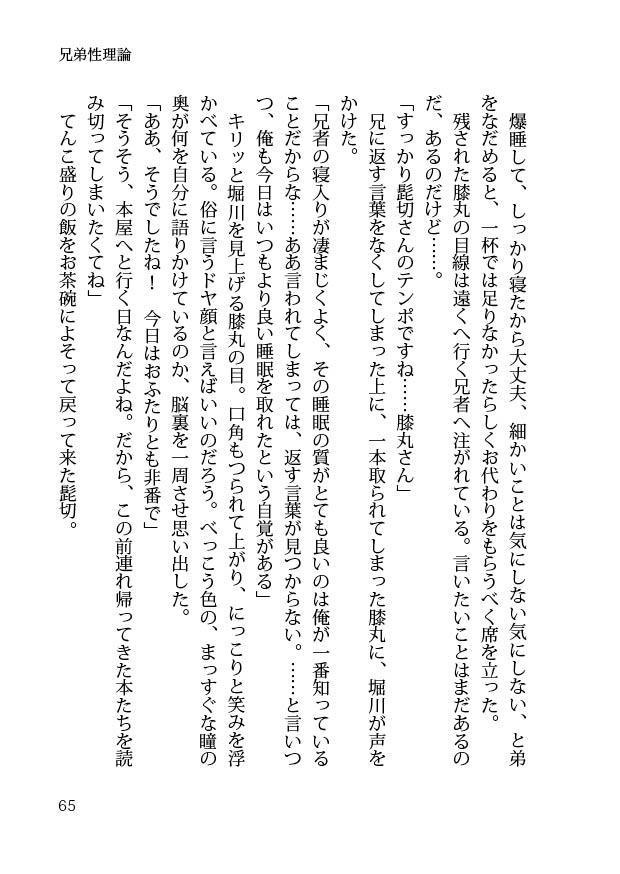 兄弟性理論
　爆睡して、しっかり寝たから大丈夫、細かいことは気にしない気にしない、と弟
をなだめると、一杯では足りなかったらしくお代わりをもらうべく席を立った。
　残された膝丸の目線は遠くへ行く兄者へ注がれている。言いたいことはまだあるの
だ、あるのだけど……。
「すっかり髭切さんのテンポですね……膝丸さん」
　兄に返す言葉をなくしてしまった上に、一本取られてしまった膝丸に、堀川が声を
かけた。
「兄者の寝入りが凄まじくよく、その睡眠の質がとても良いのは俺が一番知っている
ことだからな……ああ言われてしまっては、返す言葉が見つからない。……と言いつ
つ、俺も今日はいつもより良い睡眠を取れたという自覚がある」
　キリッと堀川を見上げる膝丸の目。口角もつられて上がり、にっこりと笑みを浮
かべている。俗に言うドヤ顔と言えばいいのだろう。べっこう色の、まっすぐな瞳の
奥が何を自分に語りかけているのか、脳裏を一周させ思い出した。
「ああ、そうでしたね！　今日はおふたりとも非番で」
「そうそう、本屋へと行く日なんだよね。だから、この前連れ帰ってきた本たちを読
み切ってしまいたくてね」
　てんこ盛りの飯をお茶碗によそって戻って来た髭切。
65